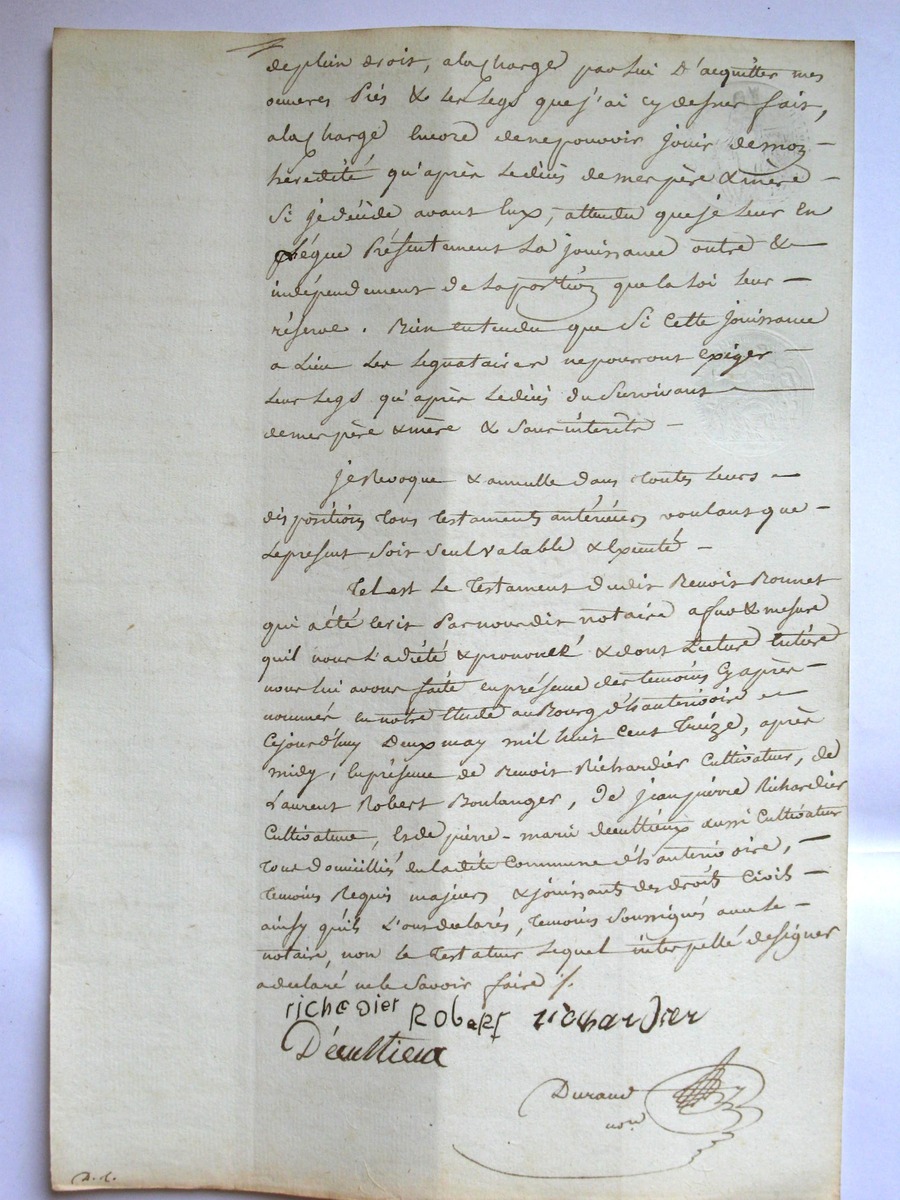 de plein droit, a la charge par lui d'acquitter mes
ouvres Piés & les legs que j'ai cy dessus fait,
a la charge encore de ne pouvoir jouir de mon
héredité qu'après le décés de mes père & mère
Si je décéde avant eux, attendu que je leur en
légue Présentement La jouissance outre &
indépendement de la portion que la loi leur
réserve. Bien entendu que Si Cette jouissance
a Lieu Les Legnataires ne pourront Exiger
Leur Legs qu'après le décés du Survivant
de mes père & mère & Sans intérêts
je Revoque & annulle dans toutes Leurs
dispositions tous testaments antérieurs voulant que
Le present Soit Seul valable & Exécuté
Tel est Le Testament dudit Benoit Bonnet
qui a été écrit Par nous dit notaire a fur & mesure
quil nous L'a dicté & prononcé & dont Lecture entière
nous lui avons faite en présence des temoins Cy après
nommés en notre Etude au Bourg d'hauterivoire
Cejourd'huy Deux may mil huit Cent treize, après
midy, en présence de Benoit Richardier Cultivateur, de
Laurent Robert Boulanger, De jean pierre Richardier
Cultivateur, Et de pierre-marie décultieux aussi Cultivateur
Tous domiciliés en la dite Commune d'hauterivoire,
Temoins Requis majeurs & jouissants des droits Civils
ainsy qu'ils L'ont declarés, temoins Soussignés avec le
notaire, non le Testateur Lequel interpellé de signer
a declaré ne le Savoir faire ./.
richadier Robert richardier
Décultieux
Durand
nore
D. C.